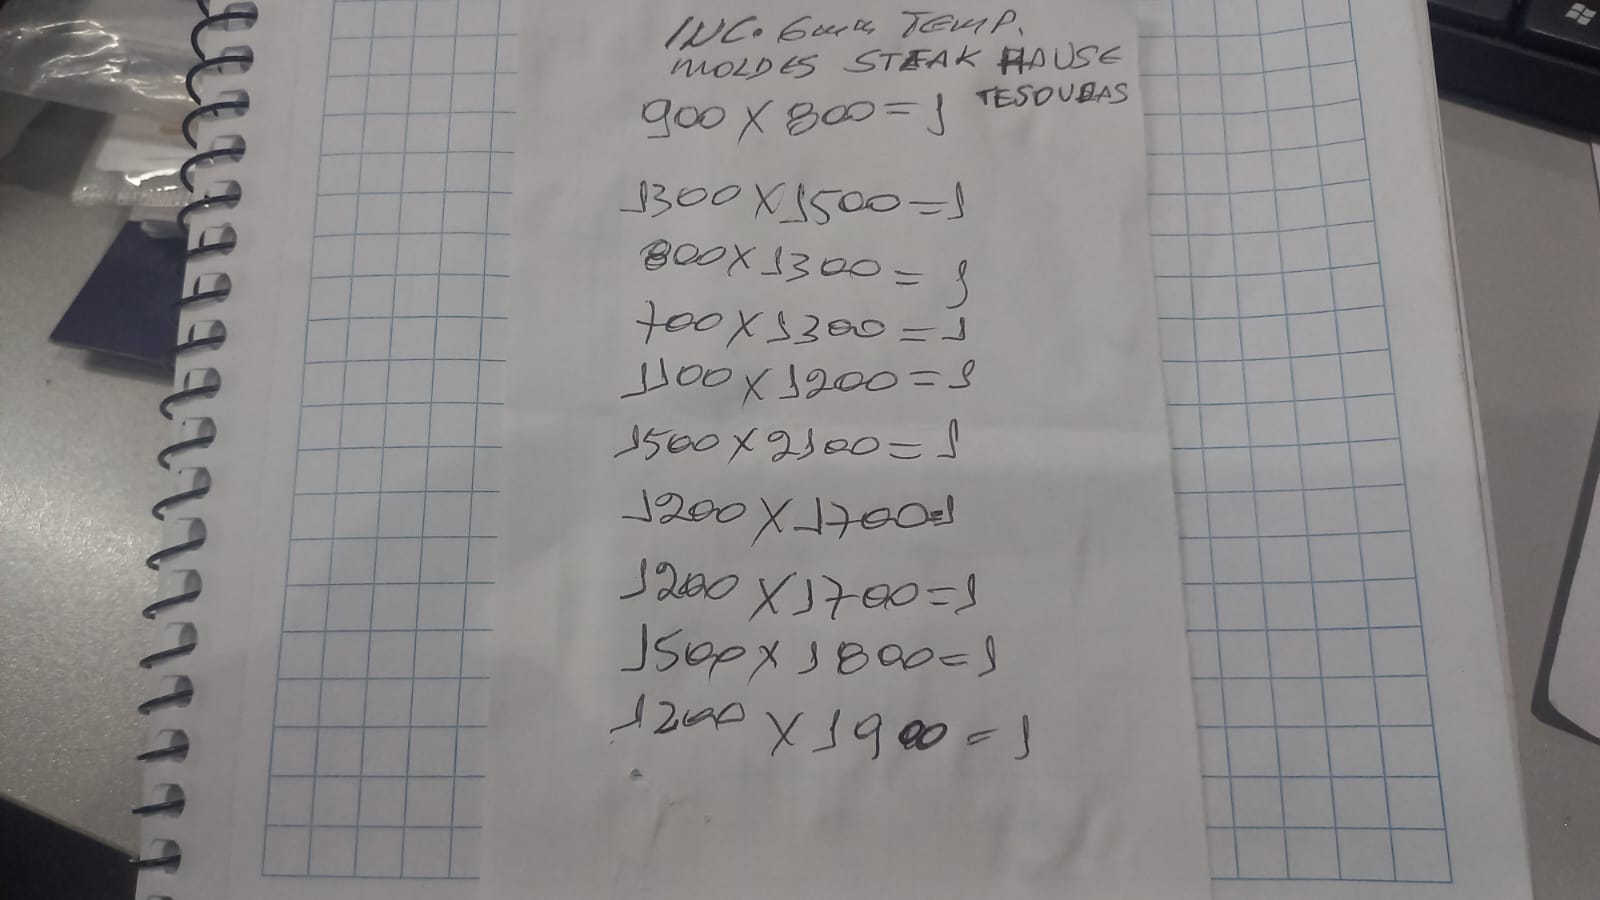 INC. 6mm TEMP.
MOLDES STEAK HAUSE
TESOURAS
900 X 800 = 1
1300 X 1500 = 1
800 X 1300 = 1
700 X 1300 = 1
1100 X 1200 = 1
1500 X 2100 = 1
1200 X 1700 = 1
1200 X 1700 = 1
1500 X 1800 = 1
1200 X 1900 = 1